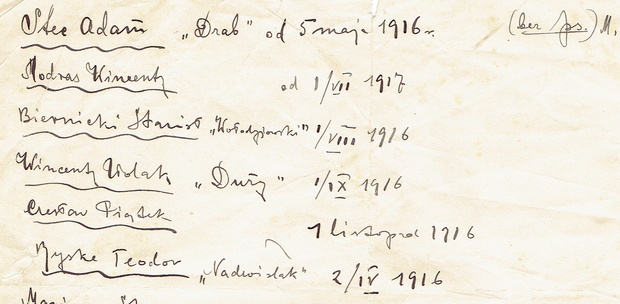 Stec Adam „Drab" od 5 maja 1916 r. (ber ps.) M.
Modras Wincenty od 1/VII 1917
Biernicki Stanisł „Kołodziejski" 1/VIII 1916
Wincenty Wolak „Duży" 1/IX 1916
Czesław Piątek 1 listopad 1916
Teodor „Nadwiślak" 2/IV 1916